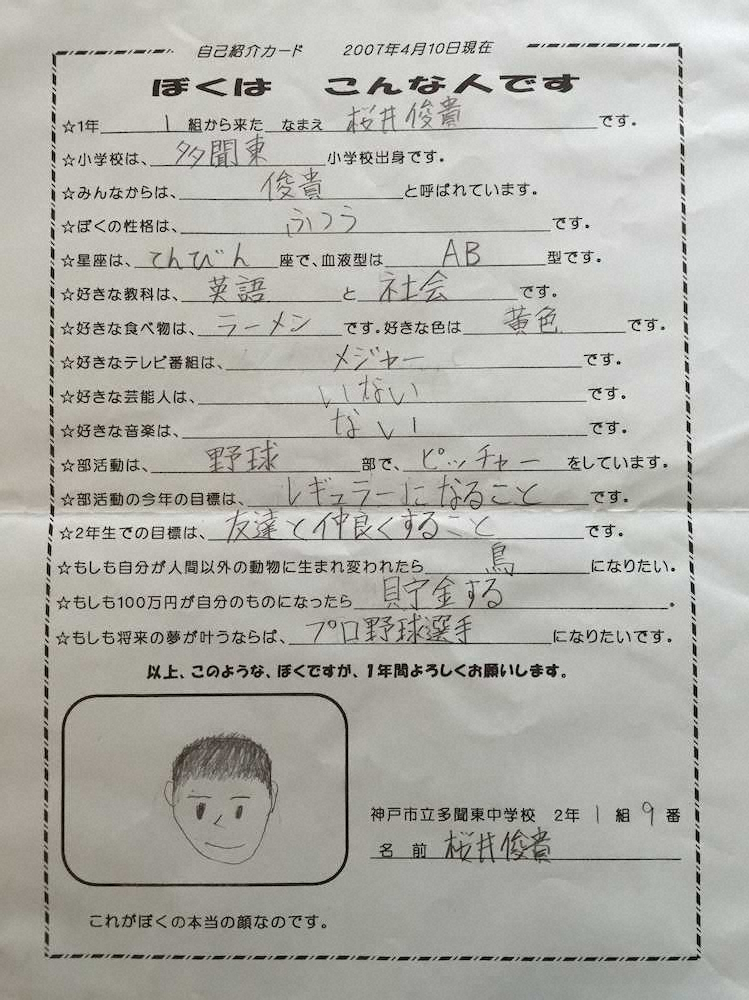 自己紹介カード 2007年4月10日現在
ぼくは こんな人です
☆1年 1 組から来た なまえ 桜井俊貴 です。
☆小学校は、多聞東 小学校出身です。
☆みんなからは、俊貴 と呼ばれています。
☆ぼくの性格は、ふつう です。
☆星座は、てんびん 座で、血液型は AB 型です。
☆好きな教科は、英語 と 社会 です。
☆好きな食べ物は、ラーメン です。好きな色は 黄色 です。
☆好きなテレビ番組は、メジャー です。
☆好きな芸能人は、いない です。
☆好きな音楽は、ない です。
☆部活動は、野球 部で、ピッチャー をしています。
☆部活動の今年の目標は、レギュラーになること です。
☆2年生での目標は、友達と仲良くすること です。
☆もしも自分が人間以外の動物に生まれ変われたら 鳥 になりたい。
☆もしも100万円が自分のものになったら 貯金する 。
☆もしも将来の夢が叶うならば、プロ野球選手 になりたいです。
以上、このような、ぼくですが、1年間よろしくお願いします。
神戸市立多聞東中学校 2年 1 組 9 番
名 前 桜井俊貴
これがぼくの本当の顔なのです。